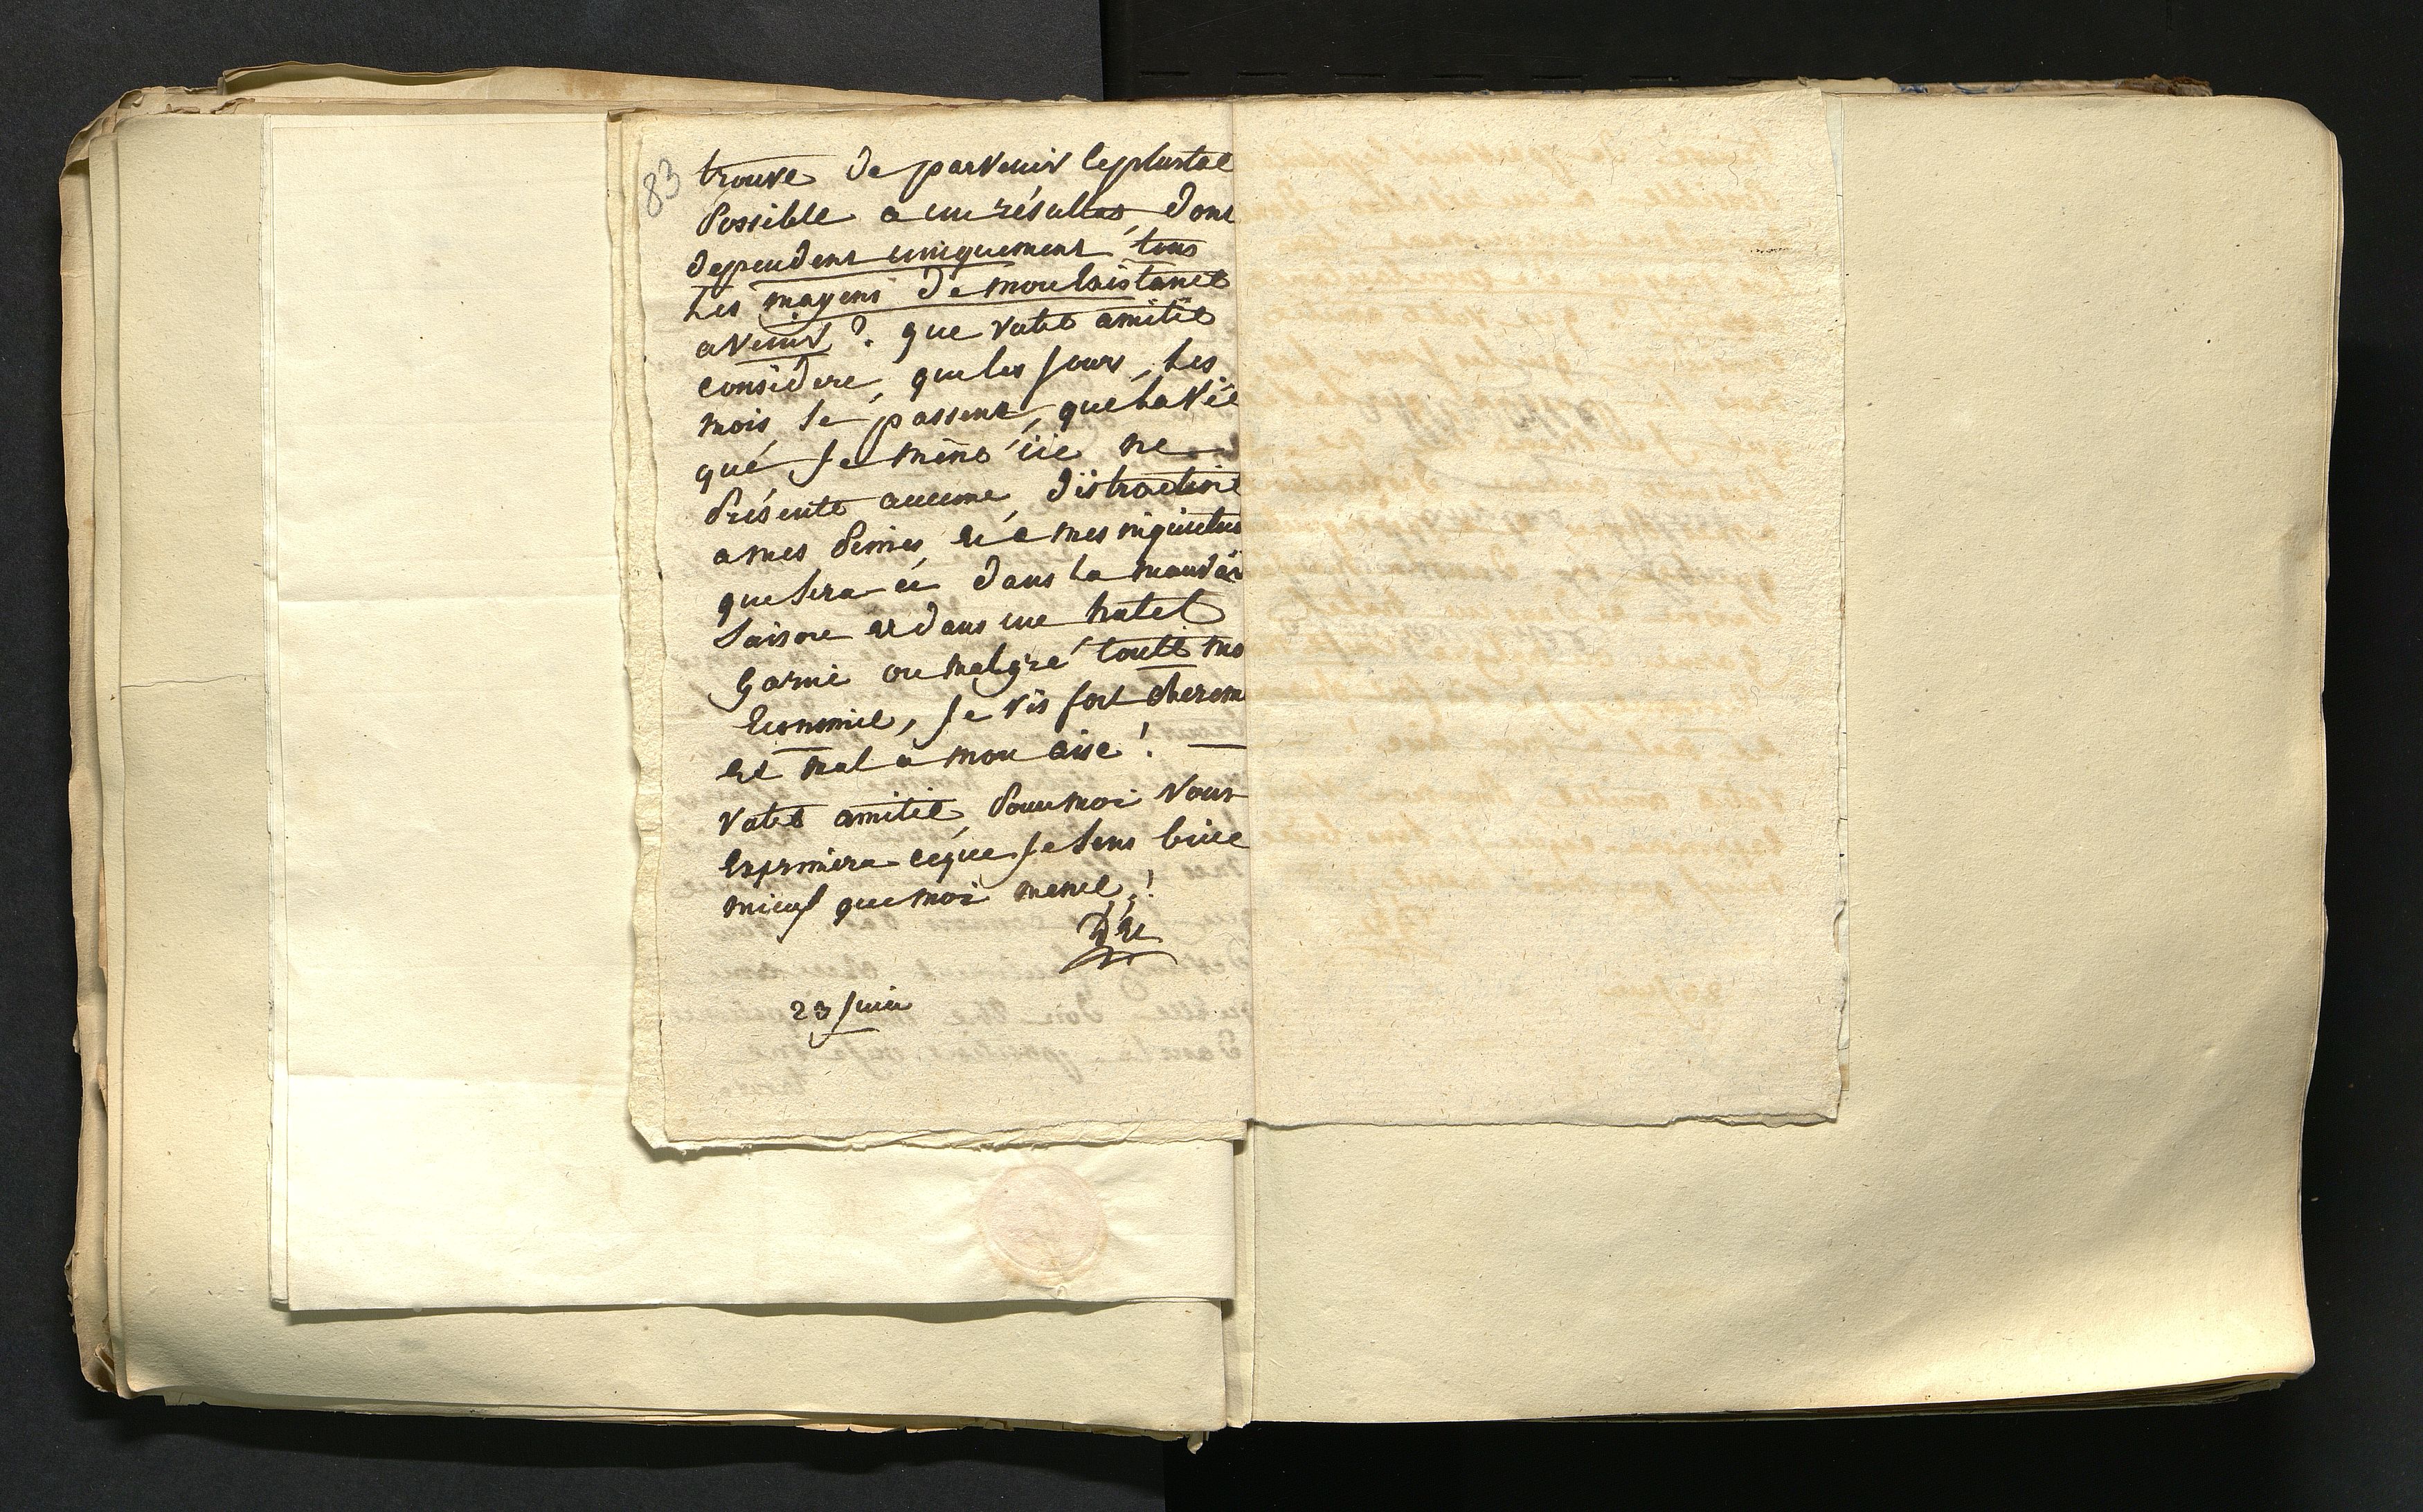 83
trouve de parvenir le plustot
possible a un résultat, dont
dependent uniquement tous
les mayens de mon Existance
avenir ?. que votre amitié
considere, que les jours, les
mois se passent, que la vie
que je mène ici ne
présente aucune distraction
a mes peines et a mes inquietud
que sera ce dans la mauvai
saison et dans un hotel
garni ou malgré toute mo
Economie, je vis fort cherem
et mal a mon aise ! —
votre amitié pour moi vous
Exprimera ce que je sens bien
mieux que moi meme !
23 juin